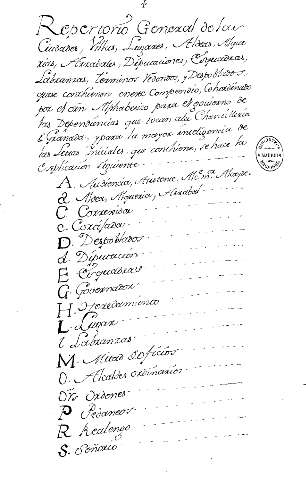 Repertorio General de las
Ciudades, Villas, Lugares, Aldeas, Alque
rias, Arrabales, Diputaciones, Esquadras,
Labranzas, terminos Redondos, y Despoblados,
que se contienen en este Compendio, Cohordinado
por el orn Alphabetico para el govierno de
las Dependencias que tocan a la Chancilleria
de Granada, y para la mayor inteligencia de
las Letras Iniciales que contiene, se hace la
Explicacion siguiente
A. Audiencia,
a. Aldea, Alqueria, Arrabal
C Corregidor
c. Cortijada
D. Despoblados
d. Diputacion
E Esquadras
G. Governador
H. Heredamiento
L. Lugar
l Labranzas
M. Mitad de oficios
O. Alcaldes ordinarios
Ordenes
P Pedaneos
R Realengo
S. Señorio